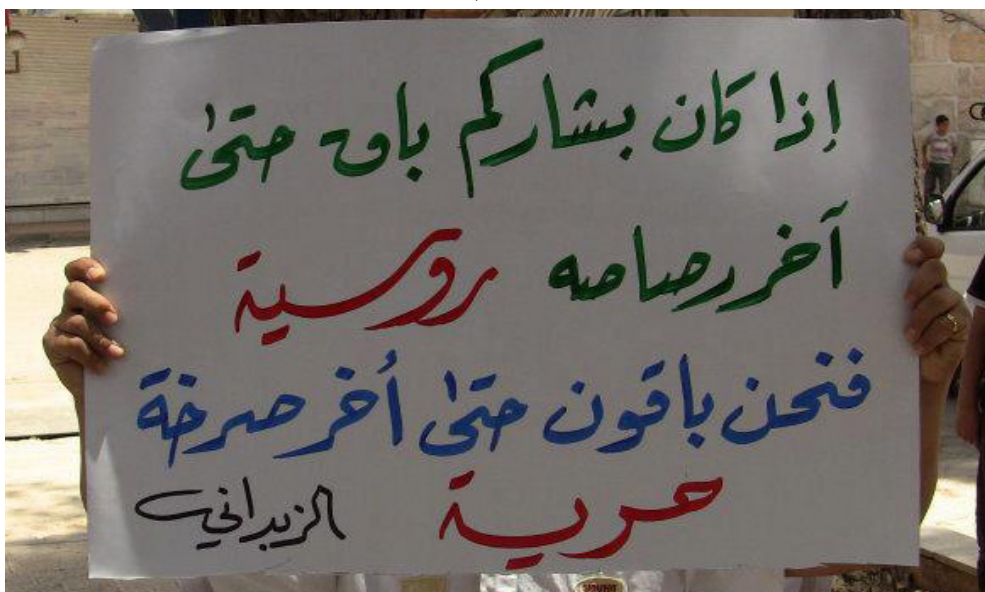 إذا كان بشاركم باق حتى
آخر رصاصه روسية
فنحن باقون حتى أخر صرخة
حرية الزبداني